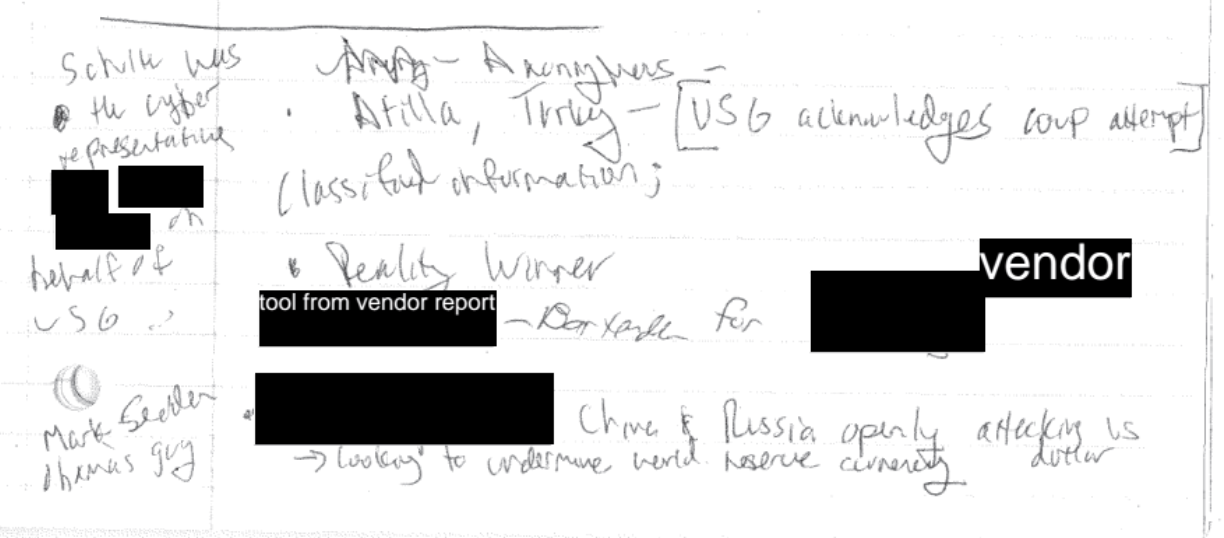 Schulte was
the cyber
representative
on
behalf of
USG
Mark
guy
Anonymous –
• Atilla, Turkey – [USG acknowledges coup attempt]
Classified information;
• Reality Winner
tool from vendor report – for vendor
China & Russia openly attacking us
→ looking to undermine world reserve currency dollar